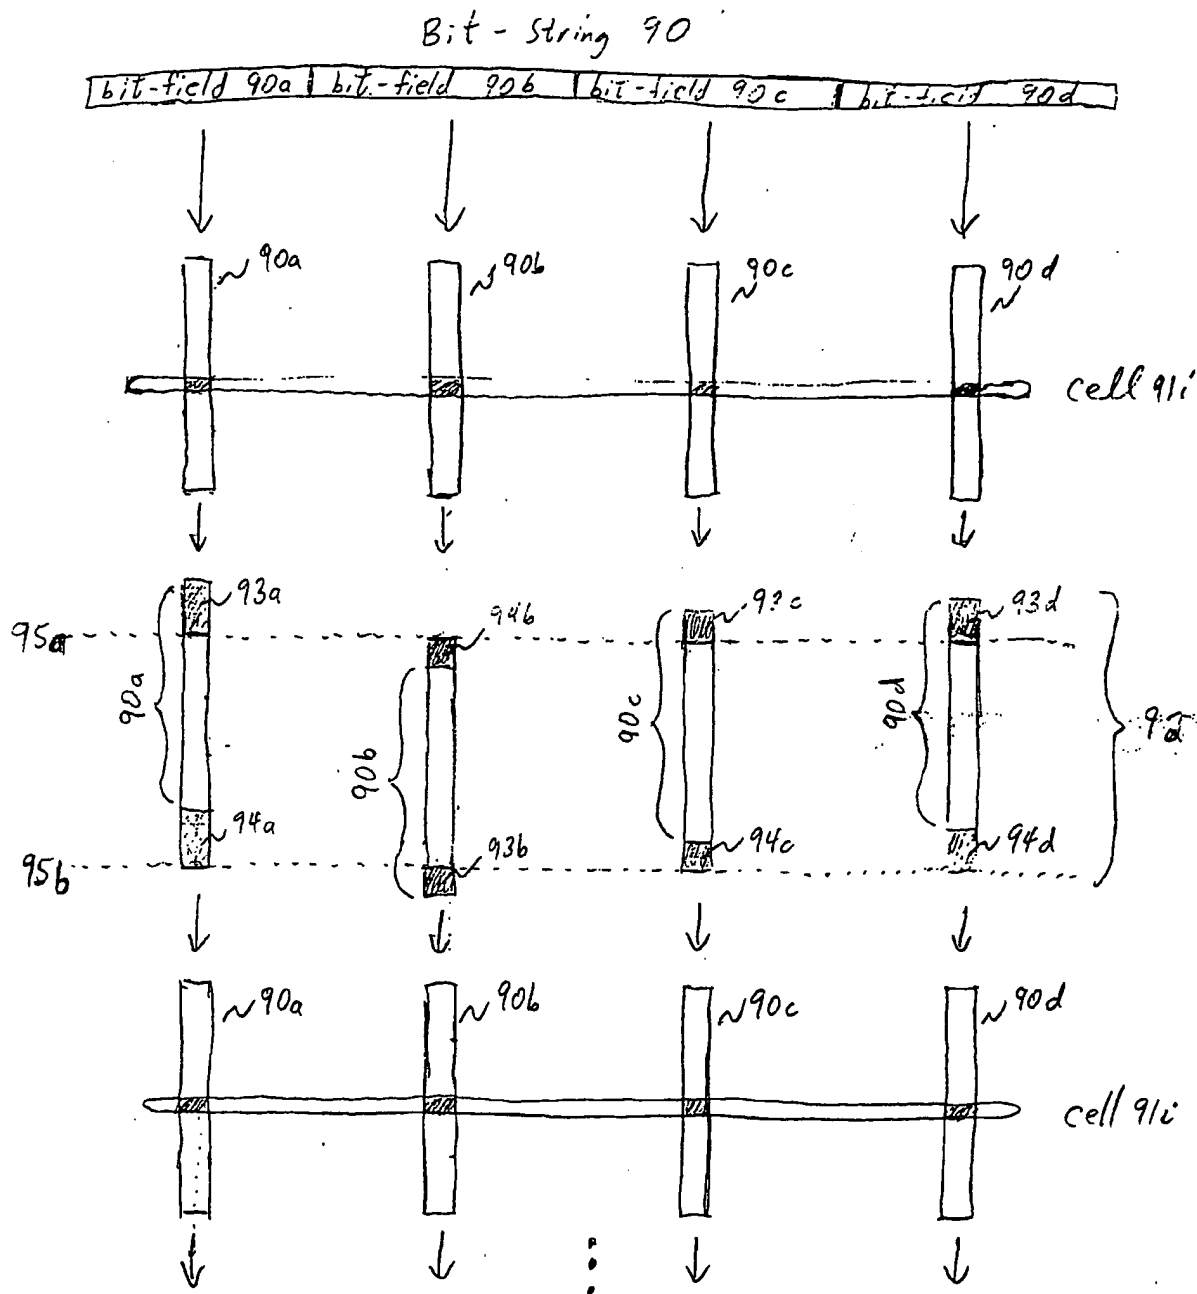 Bit - String 90
bit-field 90a bit-field 90b bit-field 90c bit-field 90d
90a 90b 90c 90d
cell 91i
93a 94b 93c 93d
95a
90a 90b 90c 90d
94a 93b 94c 94d
95b
90a 90b 90c 90d
cell 91i